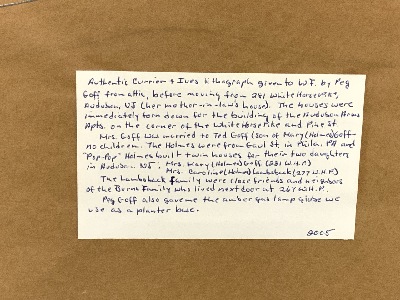 Authentic Currier & Ives lithograph given to W.F. by Peg
Goff from attic, before moving from 281 White Horse Pike,
Audubon, NJ (her mother-in-law's house). The houses were
immediately torn down for the building of the Audubon Arms
Apts. on the corner of the White Horse Pike and Pine St.
Mrs. Goff was married to Ted Goff (son of Mary (Holmes) Goff -
no children. The Holmes were from Gaul St. in Phila. PA and
"Pop-Pop" Holmes built twin houses for their two daughters
in Audubon, NJ: Mrs. Mary (Holmes) Goff (281 W.H.P.)
Mrs. Caroline (Holmes) (277 W.H.P.)
The family were close friends and neighbors
of the Family who lived next door at 267 W.H.P.
Peg Goff also gave me the amber gas lamp globe we
use as a planter base.
2005